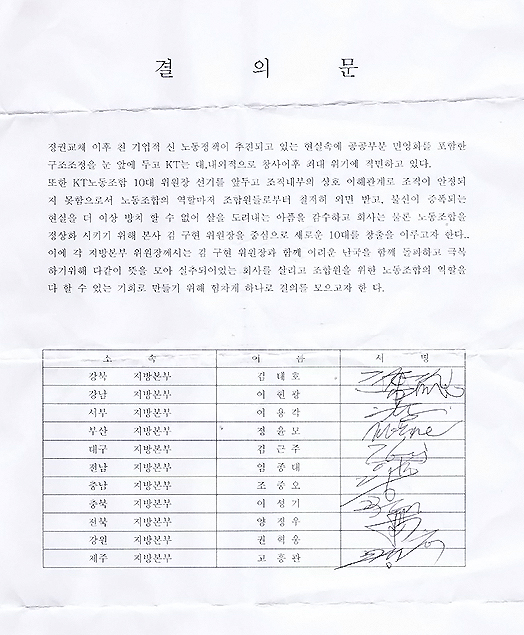 결 의 문
정권교체 이후 친 기업적 신 노동정책이 추진되고 있는 현실속에 공공부분 민영화를 포함한
구조조정을 눈 앞에 두고 KT는 대.내외적으로 창사이후 최대 위기에 직면하고 있다.
또한 KT노동조합 10대 위원장 선거를 앞두고 조직내부의 상호 이해관계로 조직이 안정되
지 못함으로서 노동조합의 역할마저 조합원들로부터 철저히 외면 받고, 불신이 증폭되는
현실을 더 이상 방치 할 수 없어 살을 도려내는 아픔을 감수하고 회사는 물론 노동조합을
정상화 시키기 위해 본사 김 구현 위원장을 중심으로 새로운 10대를 창출을 이루고자 한다..
이에 각 지방본부 위원장께서는 김 구현 위원장과 함께 어려운 난국을 함께 돌파하고 극복
하기위해 다같이 뜻을 모아 실추되어있는 회사를 살리고 조합원을 위한 노동조합의 역할을
다 할 수 있는 기회로 만들기 위해 힘차게 하나로 결의를 모으고자 한 다.
소 속 이 름 서 명
강북 지방본부 김 태 호
강남 지방본부 이 헌 광
서부 지방본부 이 용 각
부산 지방본부 정 윤 모
대구 지방본부 김 근 주
전남 지방본부 임 종 대
충남 지방본부 조 중 오
충북 지방본부 이 성 기
전북 지방본부 양 정 우
강원 지방본부 권 혁 웅
제주 지방본부 고 흥 관